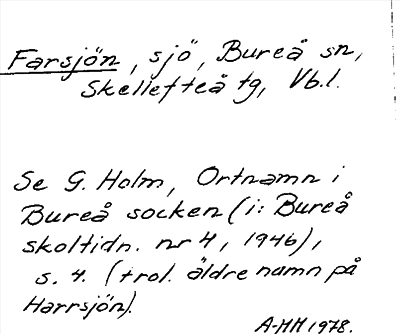 Farsjön, sjö, Bureå sn,
Skellefteå tg, Vb.l.
Se G. Holm, Ortnamn i
Bureå socken (i: Bureå
skoltidn. nr 4, 1946),
s. 4. (trol. äldre namn på
Harrsjön).
A-HH 1978.